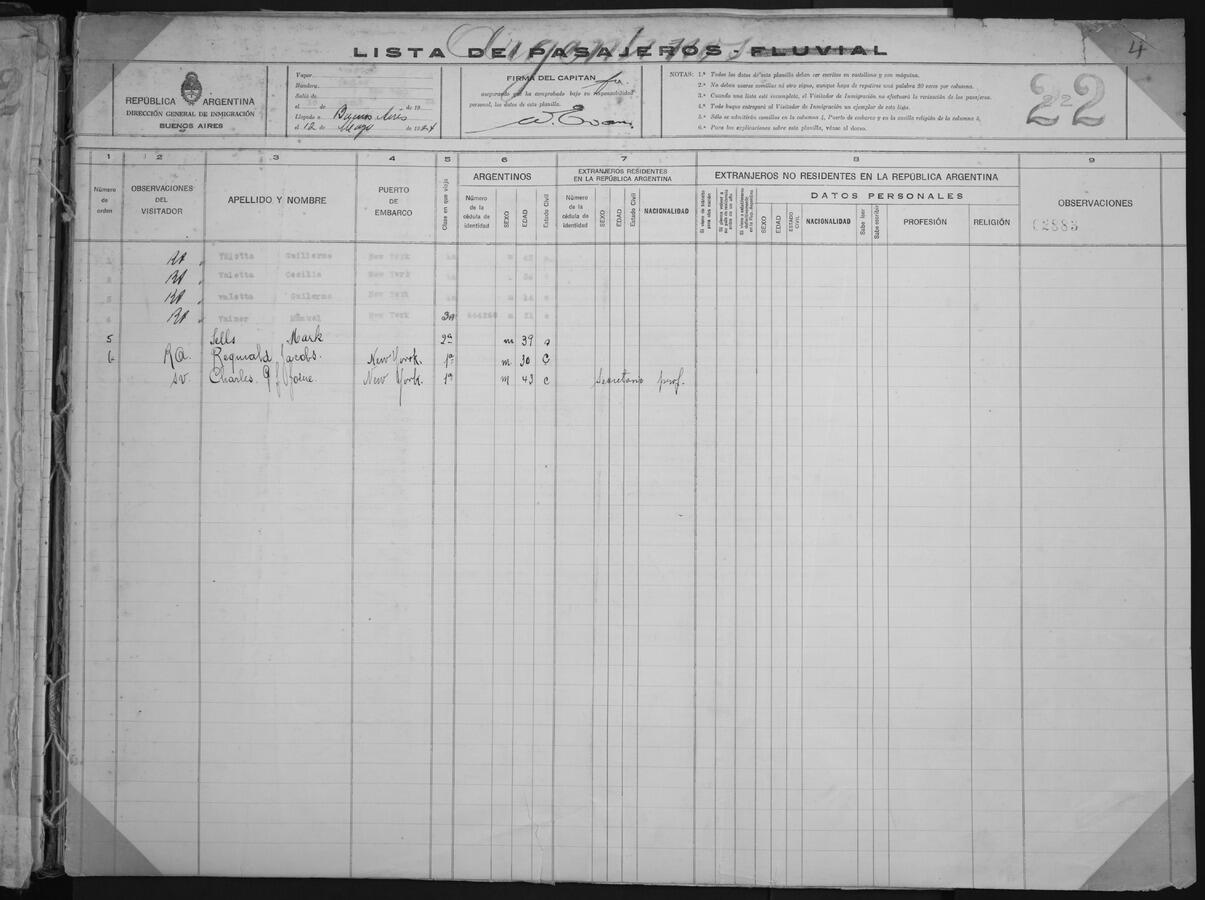 Argentinos
LISTA DE PASAJEROS - FLUVIAL
4
REPÚBLICA ARGENTINA
DIRECCIÓN GENERAL DE INMIGRACIÓN
BUENOS AIRES
Vapor
Bandera
Salió de
el de de 19
Llegado a Buenos Aires
el 12 de Mayo de 1924
FIRMA DEL CAPITAN
asegurando que ha comprobado bajo su responsabilidad
personal, los datos de esta planilla.
W. Evans
NOTAS: 1.ª Todos los datos de esta planilla deben ser escritos en castellano y con máquina.
2.ª No deben usarse comillas ni otro signo, aunque haya de repetirse una palabra 20 veces por columna.
3.ª Cuando una lista esté incompleta, el Visitador de Inmigración no efectuará la revisación de los pasajeros.
4.ª Todo buque entregará al Visitador de Inmigración un ejemplar de esta lista.
5.ª Sólo se admitirán comillas en la columna 4, Puerto de embarco y en la casilla religión de la columna 8.
6.ª Para las explicaciones sobre esta planilla, véase al dorso.
22
22
1 2 3 4 5 6 7 8 9
Número de orden
OBSERVACIONES DEL VISITADOR
APELLIDO Y NOMBRE
PUERTO DE EMBARCO
Clase en que viaja
ARGENTINOS
Número de la cédula de identidad
SEXO
EDAD
Estado Civil
EXTRANJEROS RESIDENTES EN LA REPÚBLICA ARGENTINA
Número de la cédula de identidad
SEXO
EDAD
Estado Civil
NACIONALIDAD
EXTRANJEROS NO RESIDENTES EN LA REPÚBLICA ARGENTINA
DATOS PERSONALES
SEXO
EDAD
ESTADO CIVIL
NACIONALIDAD
Sabe leer
Sabe escribir
PROFESIÓN
RELIGIÓN
OBSERVACIONES
02883
1 RA Valetta Guillermo New York m
2 RA Valetta Cecilia New York
3 RA Valetta Guilermo New York m
4 RA Manuel New York 3a m 21 s
5 Sells Mark 2ª m 39 s
6 RA. Reginald Jacobs. New York. 1ª m 30 C
sv. Charles New York. 1ª m 43 c Secretario prof.